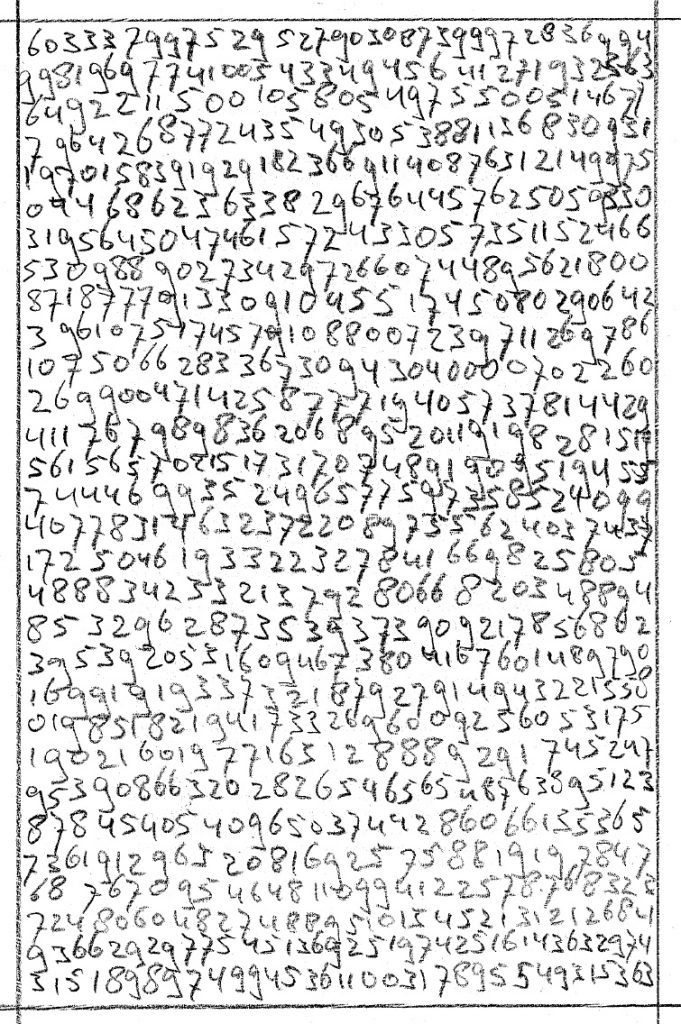 603337997529527903087399972836994
9981969774100543349456411271932563
64922115001058054975550051467
796426877243554930538811368309451
197015839192918236691140876312149975
0946862363382967644576250505330
319564504746157243305735115246 6
530988902734297266074489562180 0
871877791330910455174508029064 2
396107517457910880072397112697 86
107506628336730943040000702260
269900471425877719405737814429
411767989836206895201191982815
56156570215173172074891909519455
744469935249657759735852409 9
40778317632372208973556240374
172504619332232784166982580 5
488834233213792806682034889 4
853296287353937390921785680 2
395392053160946738041676014897 90
169919193373218792791494322155 0
019851821941733269600925605317 5
190216019771651288892917452 47
953908663202826546565487638951 23
878454054096503744286066135365
736191296520816925758819197847
68767095464811099412257876832
724806048274889510154521312126841
936629297754513692519742516143632974
3151898974994536110031789554931 5363